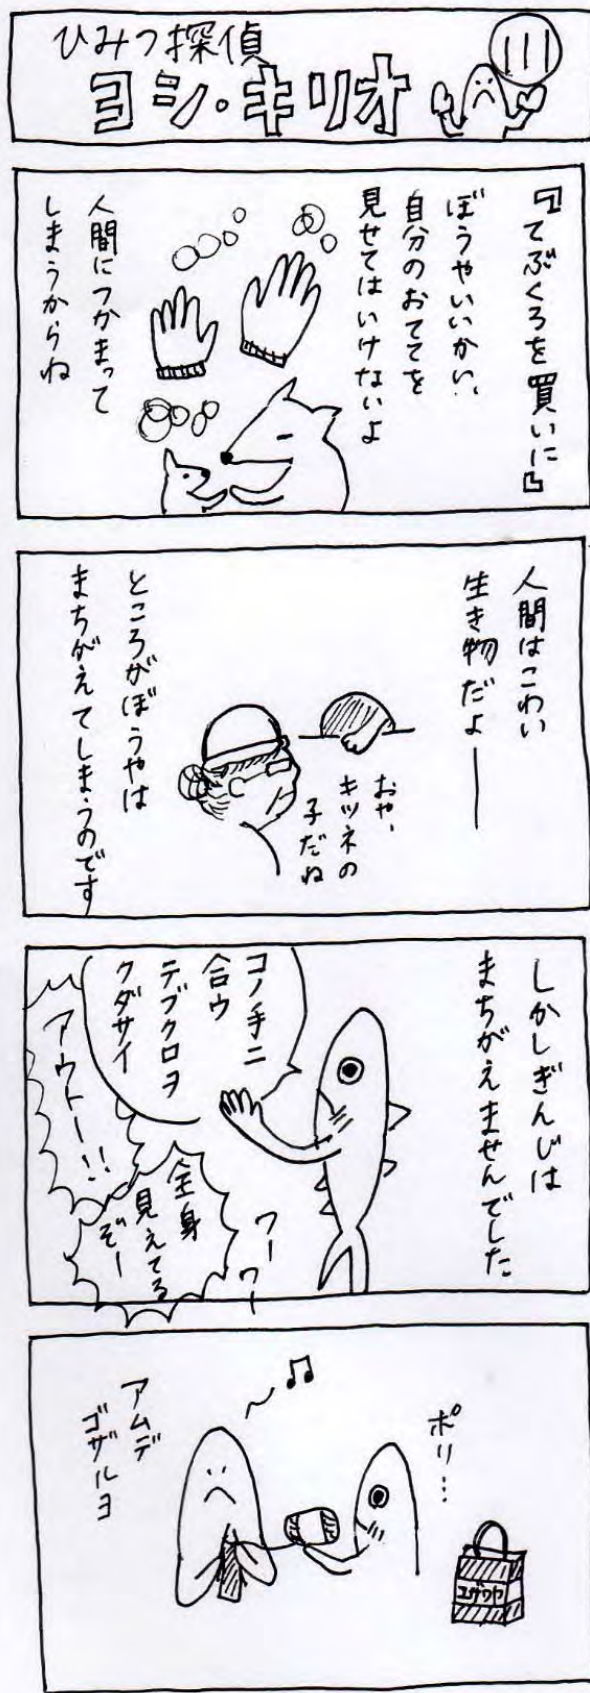 ひみつ探偵
ヨシ・キリオ
『てぶくろを買いに』
ぼうやいいかい、
自分のおててを
見せてはいけないよ
人間につかまって
しまうからね
人間はこわい
生き物だよ――
おや、
キツネの
子だね
ところがぼうやは
まちがえてしまうのです
しかしぎんじは
まちがえませんでした
コノ手ニ
合ウ
テブクロヲ
クダサイ
ワーワー
全身
見えてる
ぞー
アウトー!!
ポリ…
ユザワヤ
アムデ
ゴザルヨ